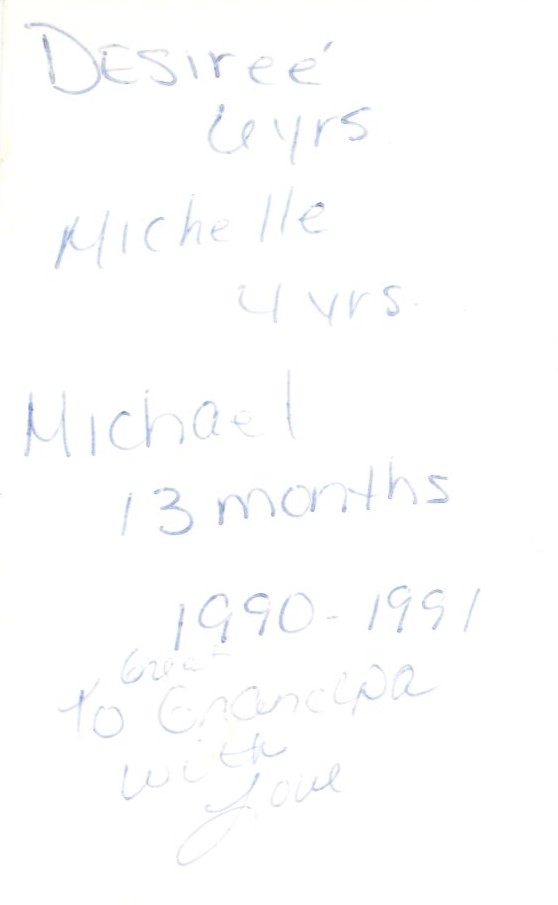 DESireé
6 yrs
Michelle
4 yrs.
Michael
13 months
1990-1991
Great
To Grandpa
with
Love